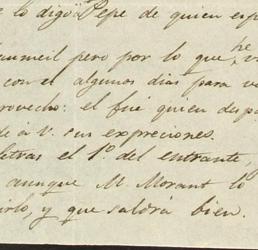 lo digo "Pepe de quien esp
pero por lo que he v
con el algunos dias para v
provecho: el fué quien desp
de á V. sus expreciones.
letras el 1º. del entrante,
aunque M. Morant lo
irlo, y que saldrá bien.